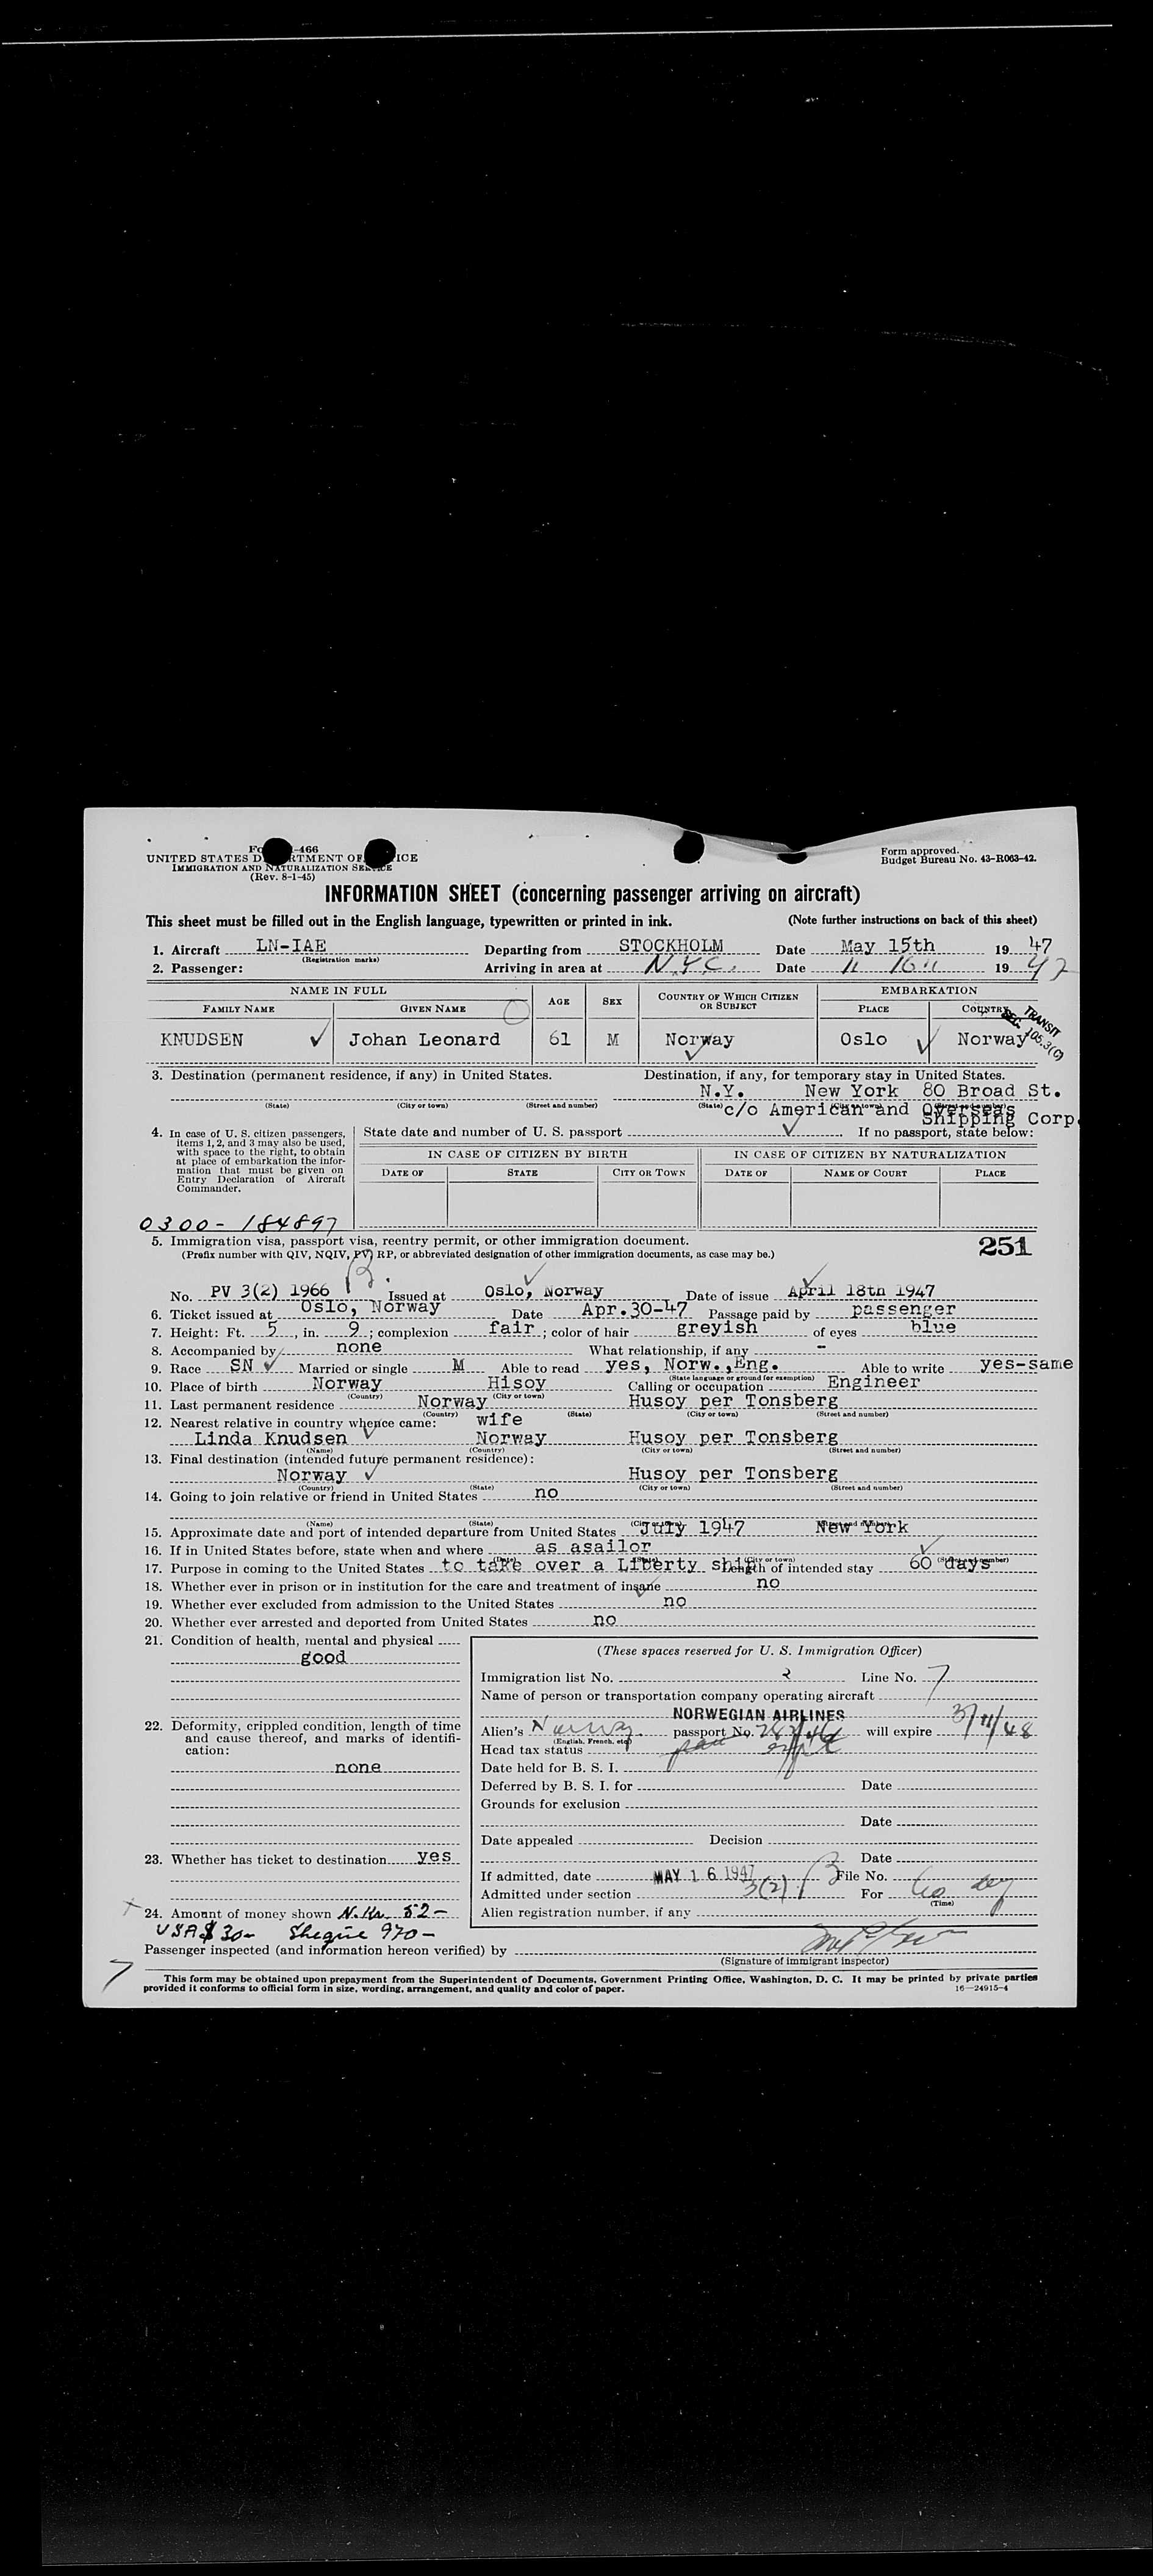 Form approved.
Budget Bureau No. 43-R063-42.
-466
UNITED STATES
IMMIGRATION AND NATURALIZATION SERVICE
(Rev. 8-1-45)
INFORMATION SHEET (concerning passenger arriving on aircraft)
This sheet must be filled out in the English language, typewritten or printed in ink. (Note further instructions on back of this sheet)
1. Aircraft LN-IAE Departing from STOCKHOLM Date May 15th 19 47
(Registration marks)
2. Passenger: Arriving in area at N.Y.C. Date " 16 " 19 47
NAME IN FULL AGE SEX COUNTRY OF WHICH CITIZEN OR SUBJECT EMBARKATION
FAMILY NAME GIVEN NAME PLACE COUNTRY
KNUDSEN Johan Leonard 61 M Norway Oslo Norway
TRANSIT
SEC. 105.3(C)
3. Destination (permanent residence, if any) in United States. Destination, if any, for temporary stay in United States.
N.Y. New York 80 Broad St.
(State) (City or town) (Street and number) (State) (City or town) (Street and number)
c/o American and Overseas
Shipping Corp.
4. In case of U. S. citizen passengers, items 1, 2, and 3 may also be used, with space to the right, to obtain at place of embarkation the information that must be given on Entry Declaration of Aircraft Commander.
State date and number of U. S. passport If no passport, state below:
IN CASE OF CITIZEN BY BIRTH IN CASE OF CITIZEN BY NATURALIZATION
DATE OF STATE CITY OR TOWN DATE OF NAME OF COURT PLACE
0300-184897
5. Immigration visa, passport visa, reentry permit, or other immigration document. 251
(Prefix number with QIV, NQIV, PV, RP, or abbreviated designation of other immigration documents, as case may be.)
No. PV 3(2) 1966 Issued at Oslo, Norway Date of issue April 18th 1947
6. Ticket issued at Oslo, Norway Date Apr.30-47 Passage paid by passenger
7. Height: Ft. 5, in. 9; complexion fair; color of hair greyish of eyes blue
8. Accompanied by none What relationship, if any -
9. Race SN Married or single M Able to read yes, Norw.,Eng. Able to write yes-same
(State language or ground for exemption)
10. Place of birth Norway Hisoy Calling or occupation Engineer
(Country) (City or town)
11. Last permanent residence Norway Husoy per Tonsberg
(Country) (State) (City or town) (Street and number)
12. Nearest relative in country whence came: wife
Linda Knudsen Norway Husoy per Tonsberg
(Name) (Country) (City or town) (Street and number)
13. Final destination (intended future permanent residence):
Norway Husoy per Tonsberg
(Country) (State) (City or town) (Street and number)
14. Going to join relative or friend in United States no
(Name) (State) (City or town) (Street and number)
15. Approximate date and port of intended departure from United States July 1947 New York
16. If in United States before, state when and where as asailor
(Date) (State) (City or town) (Street and number)
17. Purpose in coming to the United States to take over a Liberty ship Length of intended stay 60 days
18. Whether ever in prison or in institution for the care and treatment of insane no
19. Whether ever excluded from admission to the United States no
20. Whether ever arrested and deported from United States no
21. Condition of health, mental and physical
good
22. Deformity, crippled condition, length of time and cause thereof, and marks of identification:
none
23. Whether has ticket to destination yes
24. Amount of money shown N.Kr. 52-
USA $ 30- Sheque 970-
(These spaces reserved for U. S. Immigration Officer)
Immigration list No. 2 Line No. 7
Name of person or transportation company operating aircraft
NORWEGIAN AIRLINES
Alien's Norway passport No. will expire 3/11/48
(English, French, etc.)
Head tax status
Date held for B. S. I.
Deferred by B. S. I. for Date
Grounds for exclusion
Date
Date appealed Decision
Date
If admitted, date MAY 16 1947 File No.
Admitted under section 3(2) For 60 day
(Time)
Alien registration number, if any
Passenger inspected (and information hereon verified) by
(Signature of immigrant inspector)
7
This form may be obtained upon prepayment from the Superintendent of Documents, Government Printing Office, Washington, D. C. It may be printed by private parties
provided it conforms to official form in size, wording, arrangement, and quality and color of paper. 16—24915-4